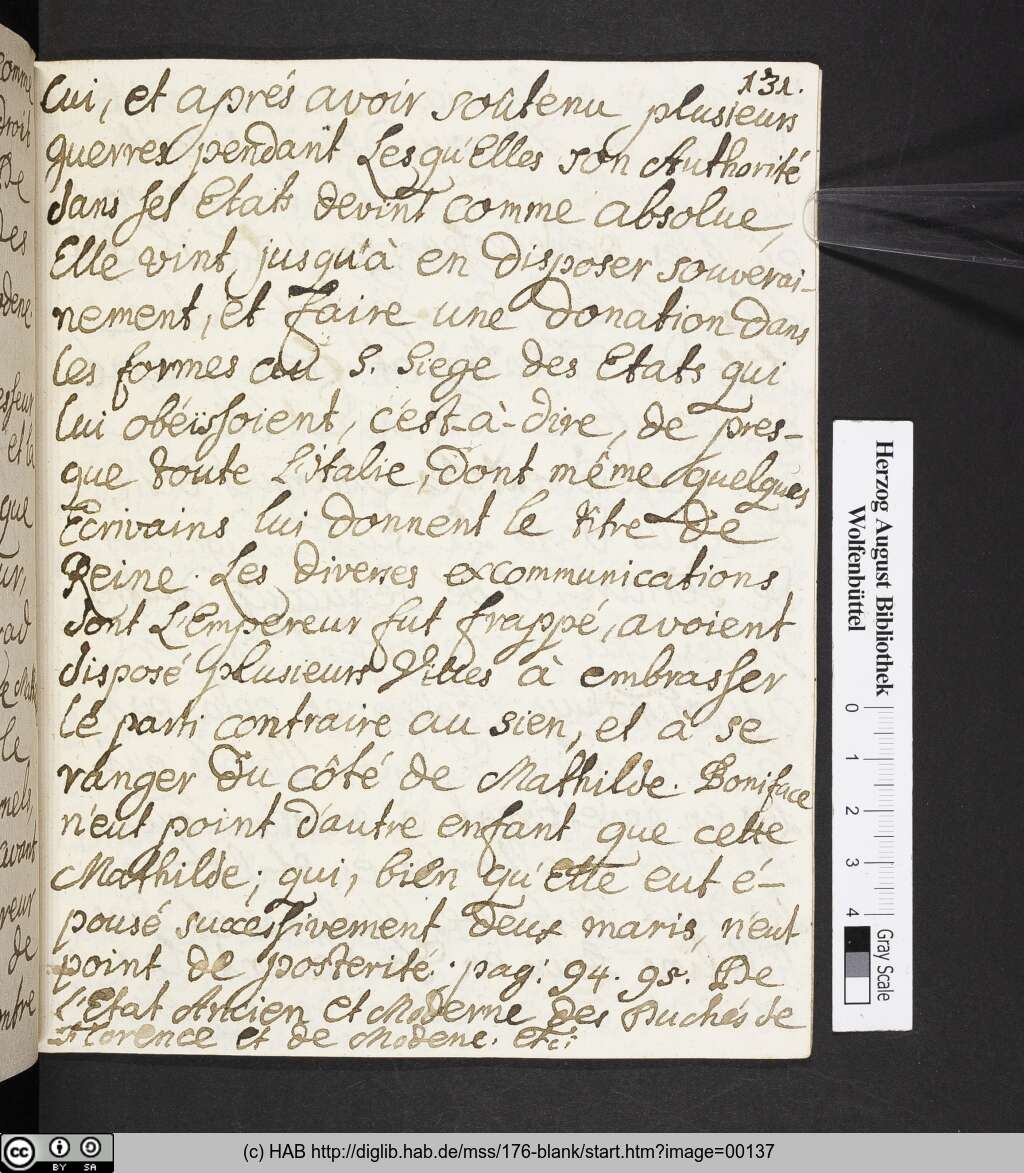 131.
Lui, et aprés avoir soûtenu plusieurs
guerres pendant Lesqu'Elles son Authorité
dans ses Etats devint comme absolue,
Elle vint, jusqu'à en disposer souverai-
nement, et faire une donation dans
les formes au S. Siege des Etats qui
lui obéïssoient, c'est-à-dire, de pres-
que toute L'Italie, dont même quelques
Ecrivains lui donnent le titre de
Reine. Les diverses excommunications
dont L'Empereur fut frappé, avoient
disposé plusieurs Villes à embrasser
le parti contraire au sien, et à se
ranger du côté de Mathilde. Boniface
n'eut point d'autre enfant que cette
Mathilde; qui, bien qu'Elle eut é-
pousé successivement deux maris, n'eut
point de posterité. pag: 94. 95. De
L'Etat Ancien et Moderne des Duchés de
Florence et de Modene. Etc:
Herzog August Bibliothek
Wolfenbüttel
0 1 2 3 4
Gray Scale
cc BY SA
(c) HAB http://diglib.hab.de/mss/176-blank/start.htm?image=00137